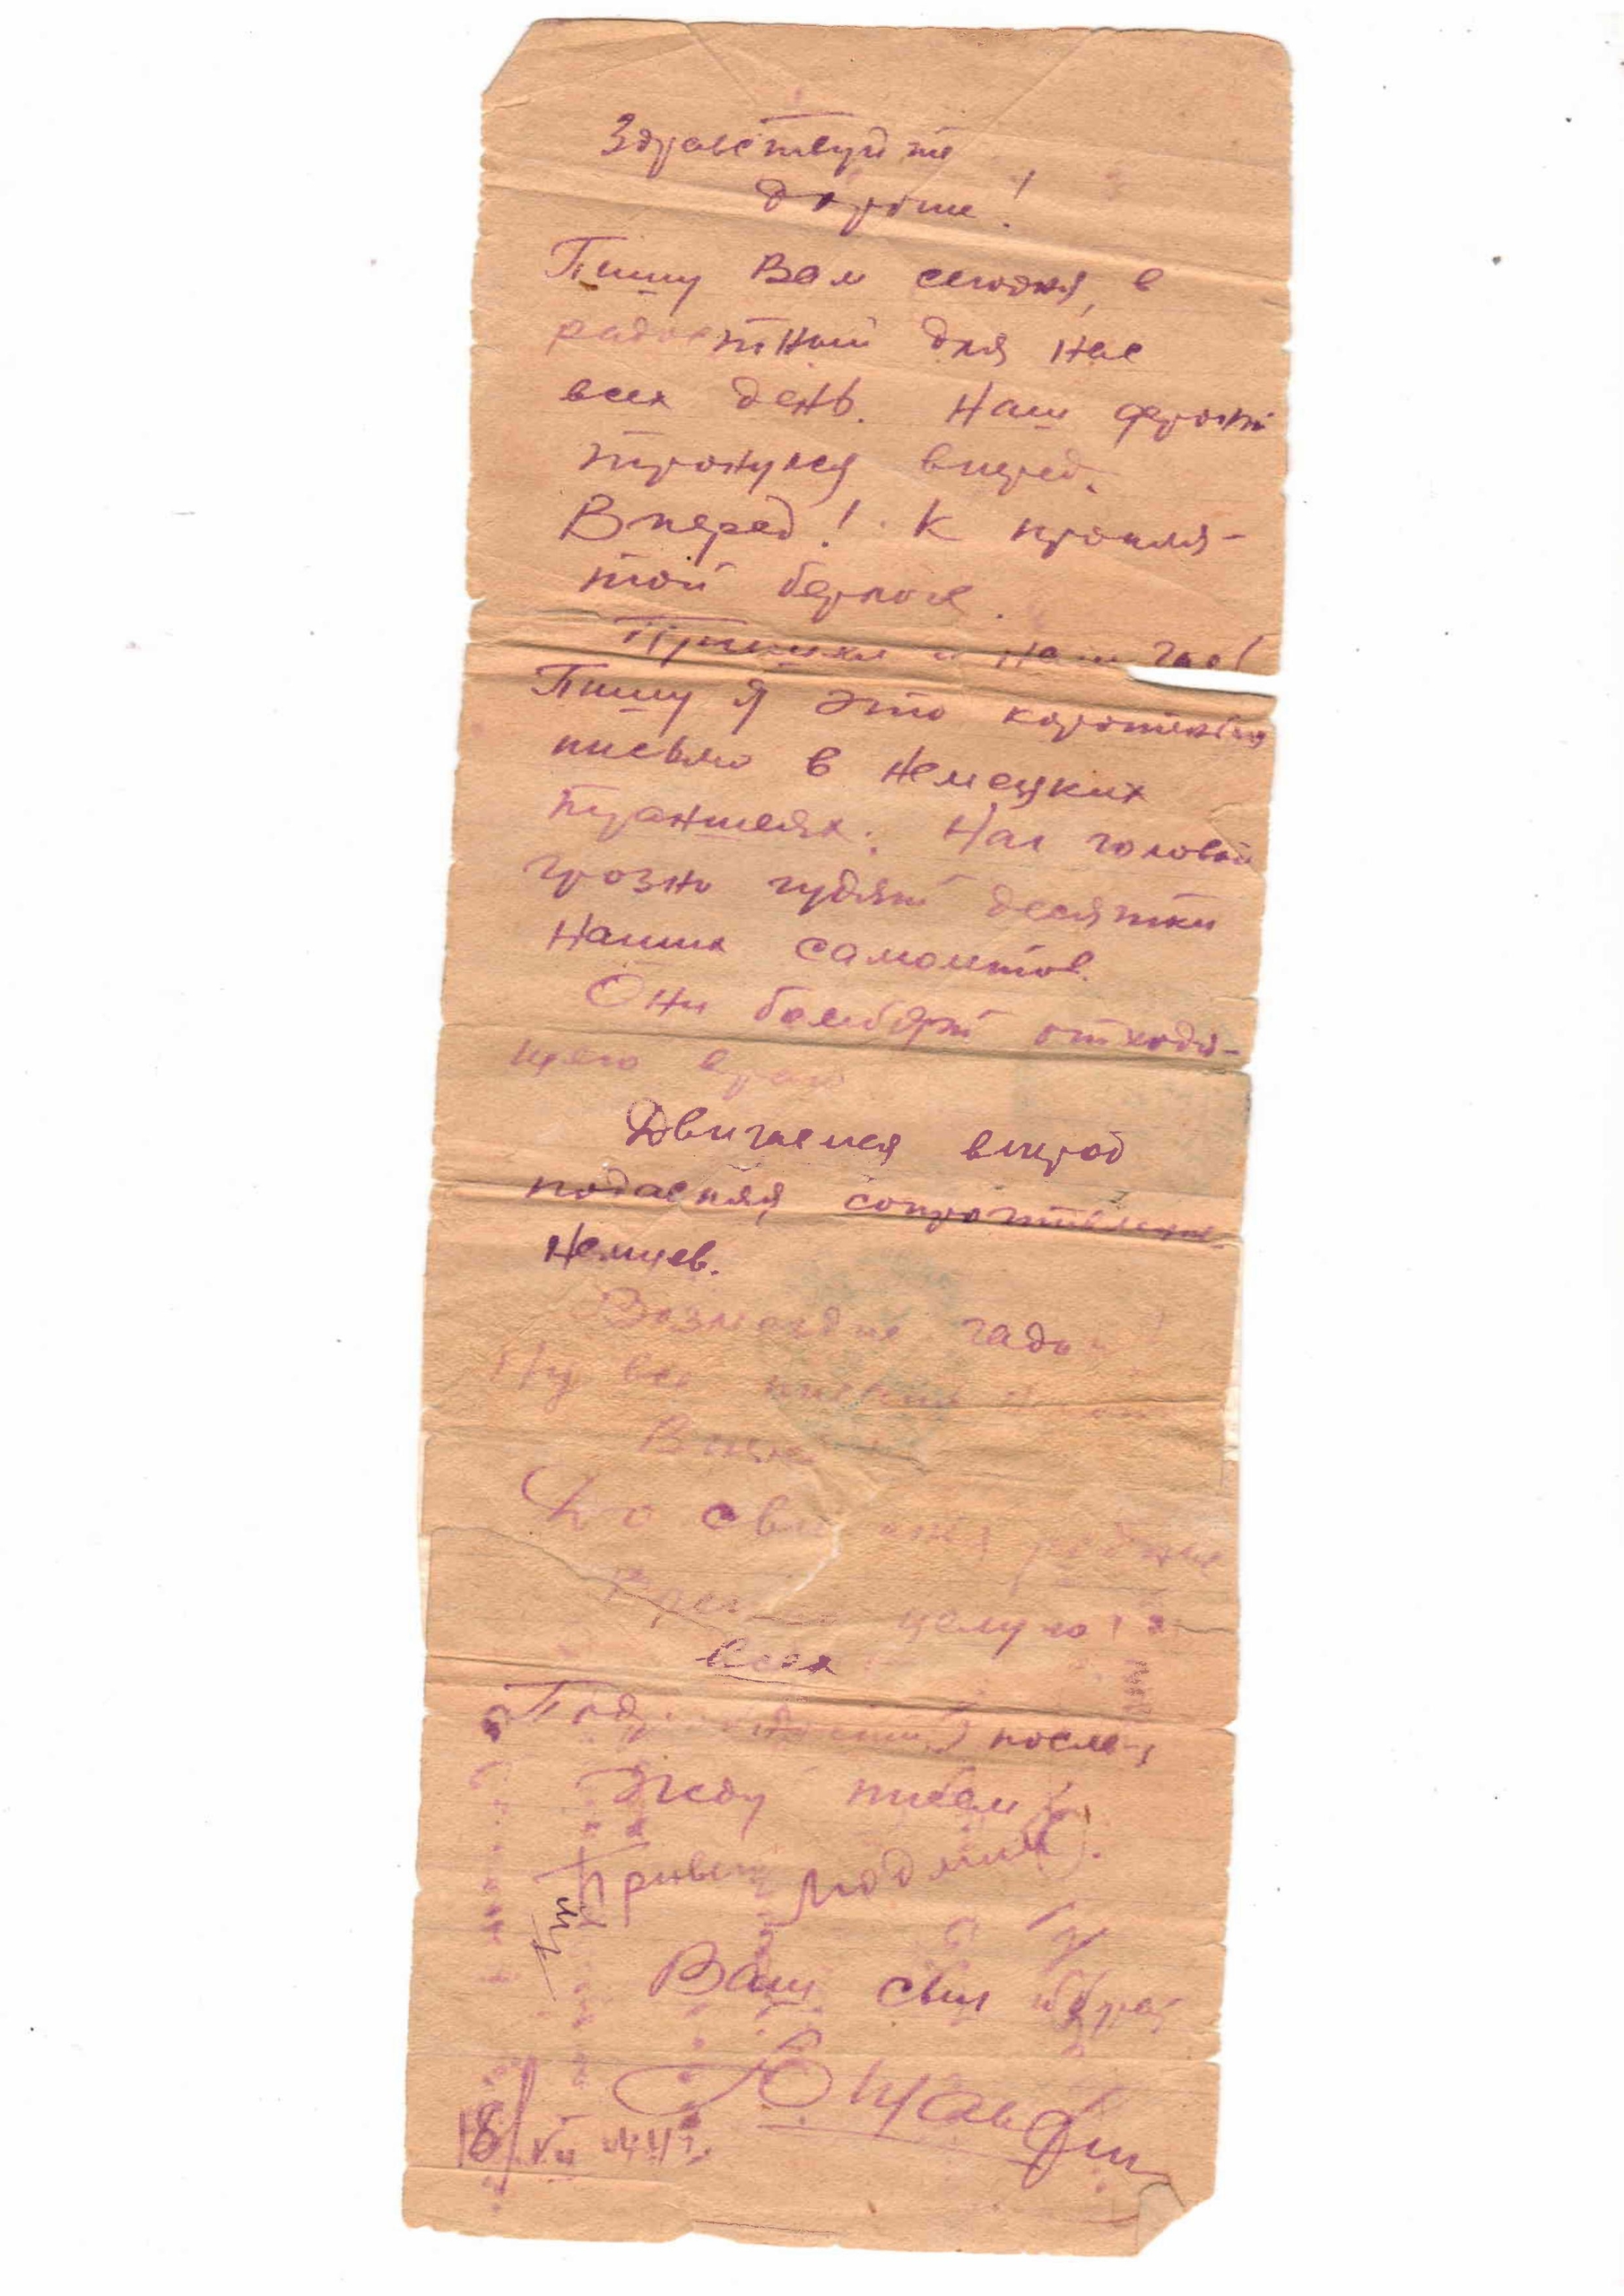 Здравствуйте
дорогие!
Пишу Вам сегодня, в
радостный для нас
всех день. Наш фронт
тронулся вперед.
Вперед! К прокля-
той берлоге.
Пришел и наш час!
Пишу я это коротенькое
письмо в немецких
траншеях. Над головой
грозно гудят десятки
наших самолетов.
Они бомбят отходя-
щего врага
Двигаемся вперед
подавляя сопротивление
немцев.
Возмездие гадам!
Ну все
До свидания родные
Крепко целую
всех
после
Жду писем
Привет Людмиле.
Ваш сын и брат
18/VII 44 г.